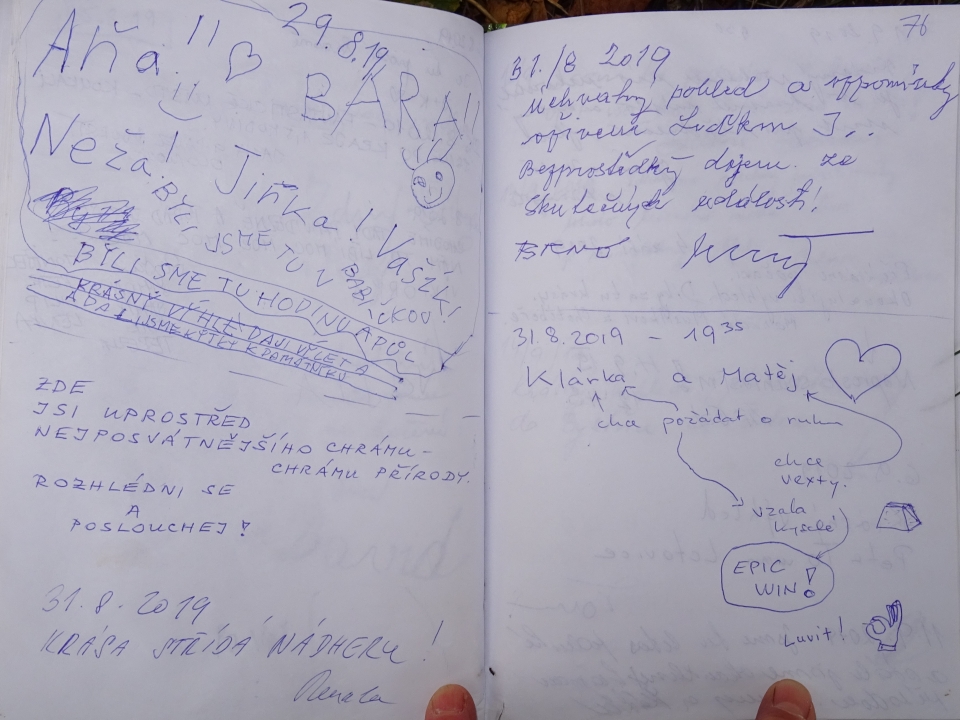 29.8.19
Aňa!! BÁRA!!
Neža! Jiřka! Vašík!
BYLI JSME TU V BABIČKOU!
BYLI SME TU HODINU A PŮL
KRÁSNÝ VÝHLED
A DALI JSME KYTKY K PAMÁTNÍKU
ZDE
JSI UPROSTŘED
NEJPOSVÁTNĚJŠÍHO CHRÁMU -
CHRÁMU PŘÍRODY.
ROZHLÉDNI SE
A
POSLOUCHEJ!
31.8.2019
KRÁSA STŘÍDÁ NÁDHERU!
Renata
76
31./8 2019
Úchvatný pohled a vzpomínky
oživení Luďkem J...
Bezprostřední dojem ze
skutečných událostí!
BRNO
31.8.2019 - 19 35
Klárka a Matěj
chce požádat o ruku
chce
vexty.
vzala
kyselé
EPIC
WIN!
Luvit!